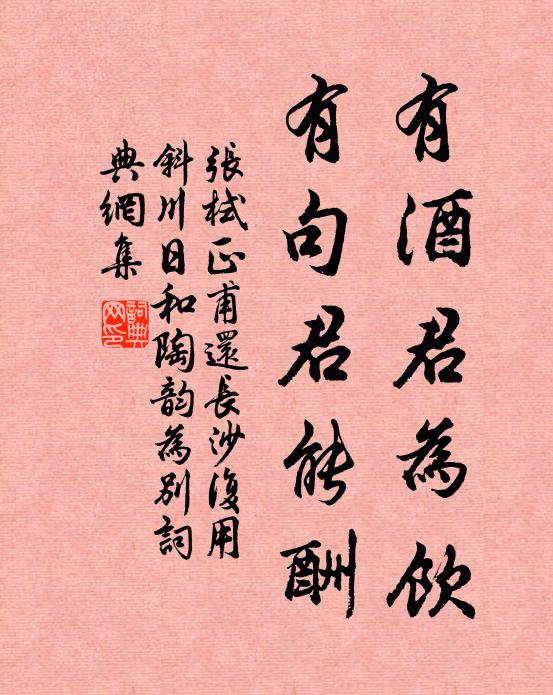 有酒君為飲
有句君能酬
張栻正甫還長沙復用
斜川日和陶韵為別詞
典網集
詞典網印